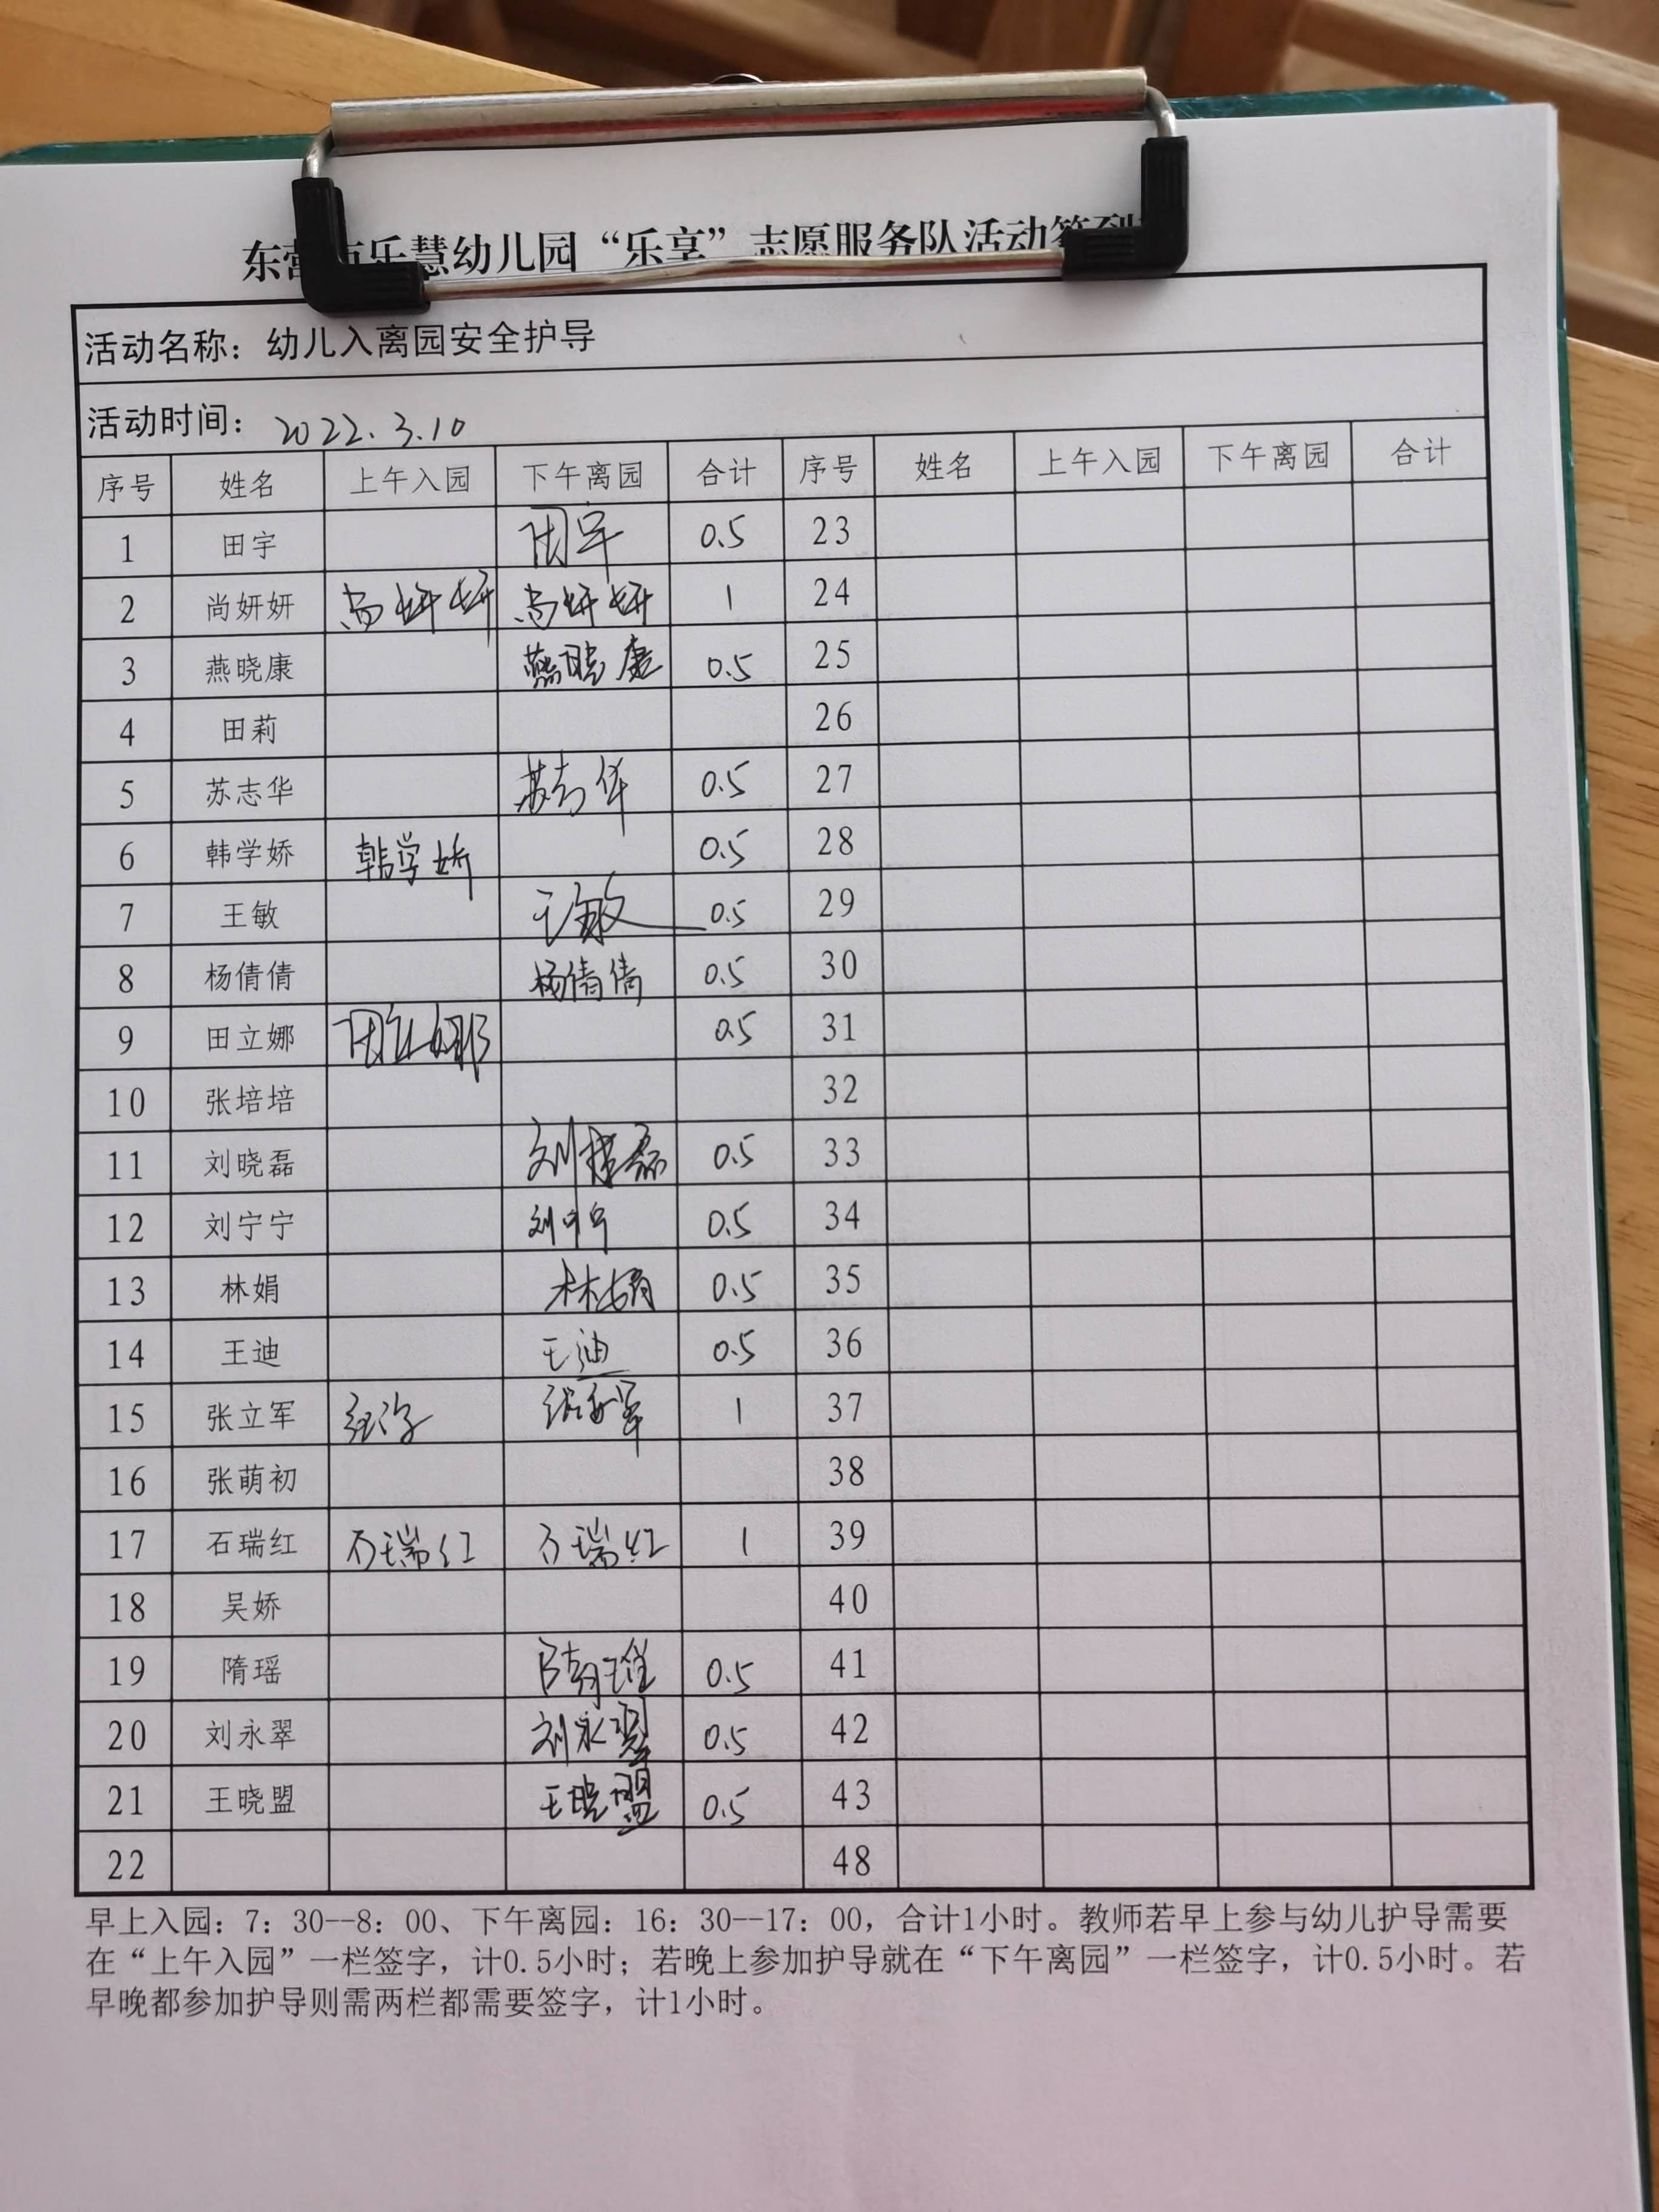 东营市乐慧幼儿园“乐享”志愿服务队活动签到
活动名称：幼儿入离园安全护导
活动时间：2022.3.10
序号 姓名 上午入园 下午离园 合计 序号 姓名 上午入园 下午离园 合计
1 田宇 田宇 0.5 23
2 尚妍妍 尚妍妍 尚妍妍 1 24
3 燕晓康 燕晓康 0.5 25
4 田莉 26
5 苏志华 苏志华 0.5 27
6 韩学娇 韩学娇 0.5 28
7 王敏 王敏 0.5 29
8 杨倩倩 杨倩倩 0.5 30
9 田立娜 田立娜 0.5 31
10 张培培 32
11 刘晓磊 刘晓磊 0.5 33
12 刘宁宁 刘宁宁 0.5 34
13 林娟 林娟 0.5 35
14 王迪 王迪 0.5 36
15 张立军 张立军 1 37
16 张萌初 38
17 石瑞红 石瑞红 石瑞红 1 39
18 吴娇 40
19 隋瑶 隋瑶 0.5 41
20 刘永翠 刘永翠 0.5 42
21 王晓盟 王晓盟 0.5 43
22 48
早上入园：7：30--8：00、下午离园：16：30--17：00，合计1小时。教师若早上参与幼儿护导需要
在“上午入园”一栏签字，计0.5小时；若晚上参加护导就在“下午离园”一栏签字，计0.5小时。若
早晚都参加护导则需两栏都需要签字，计1小时。